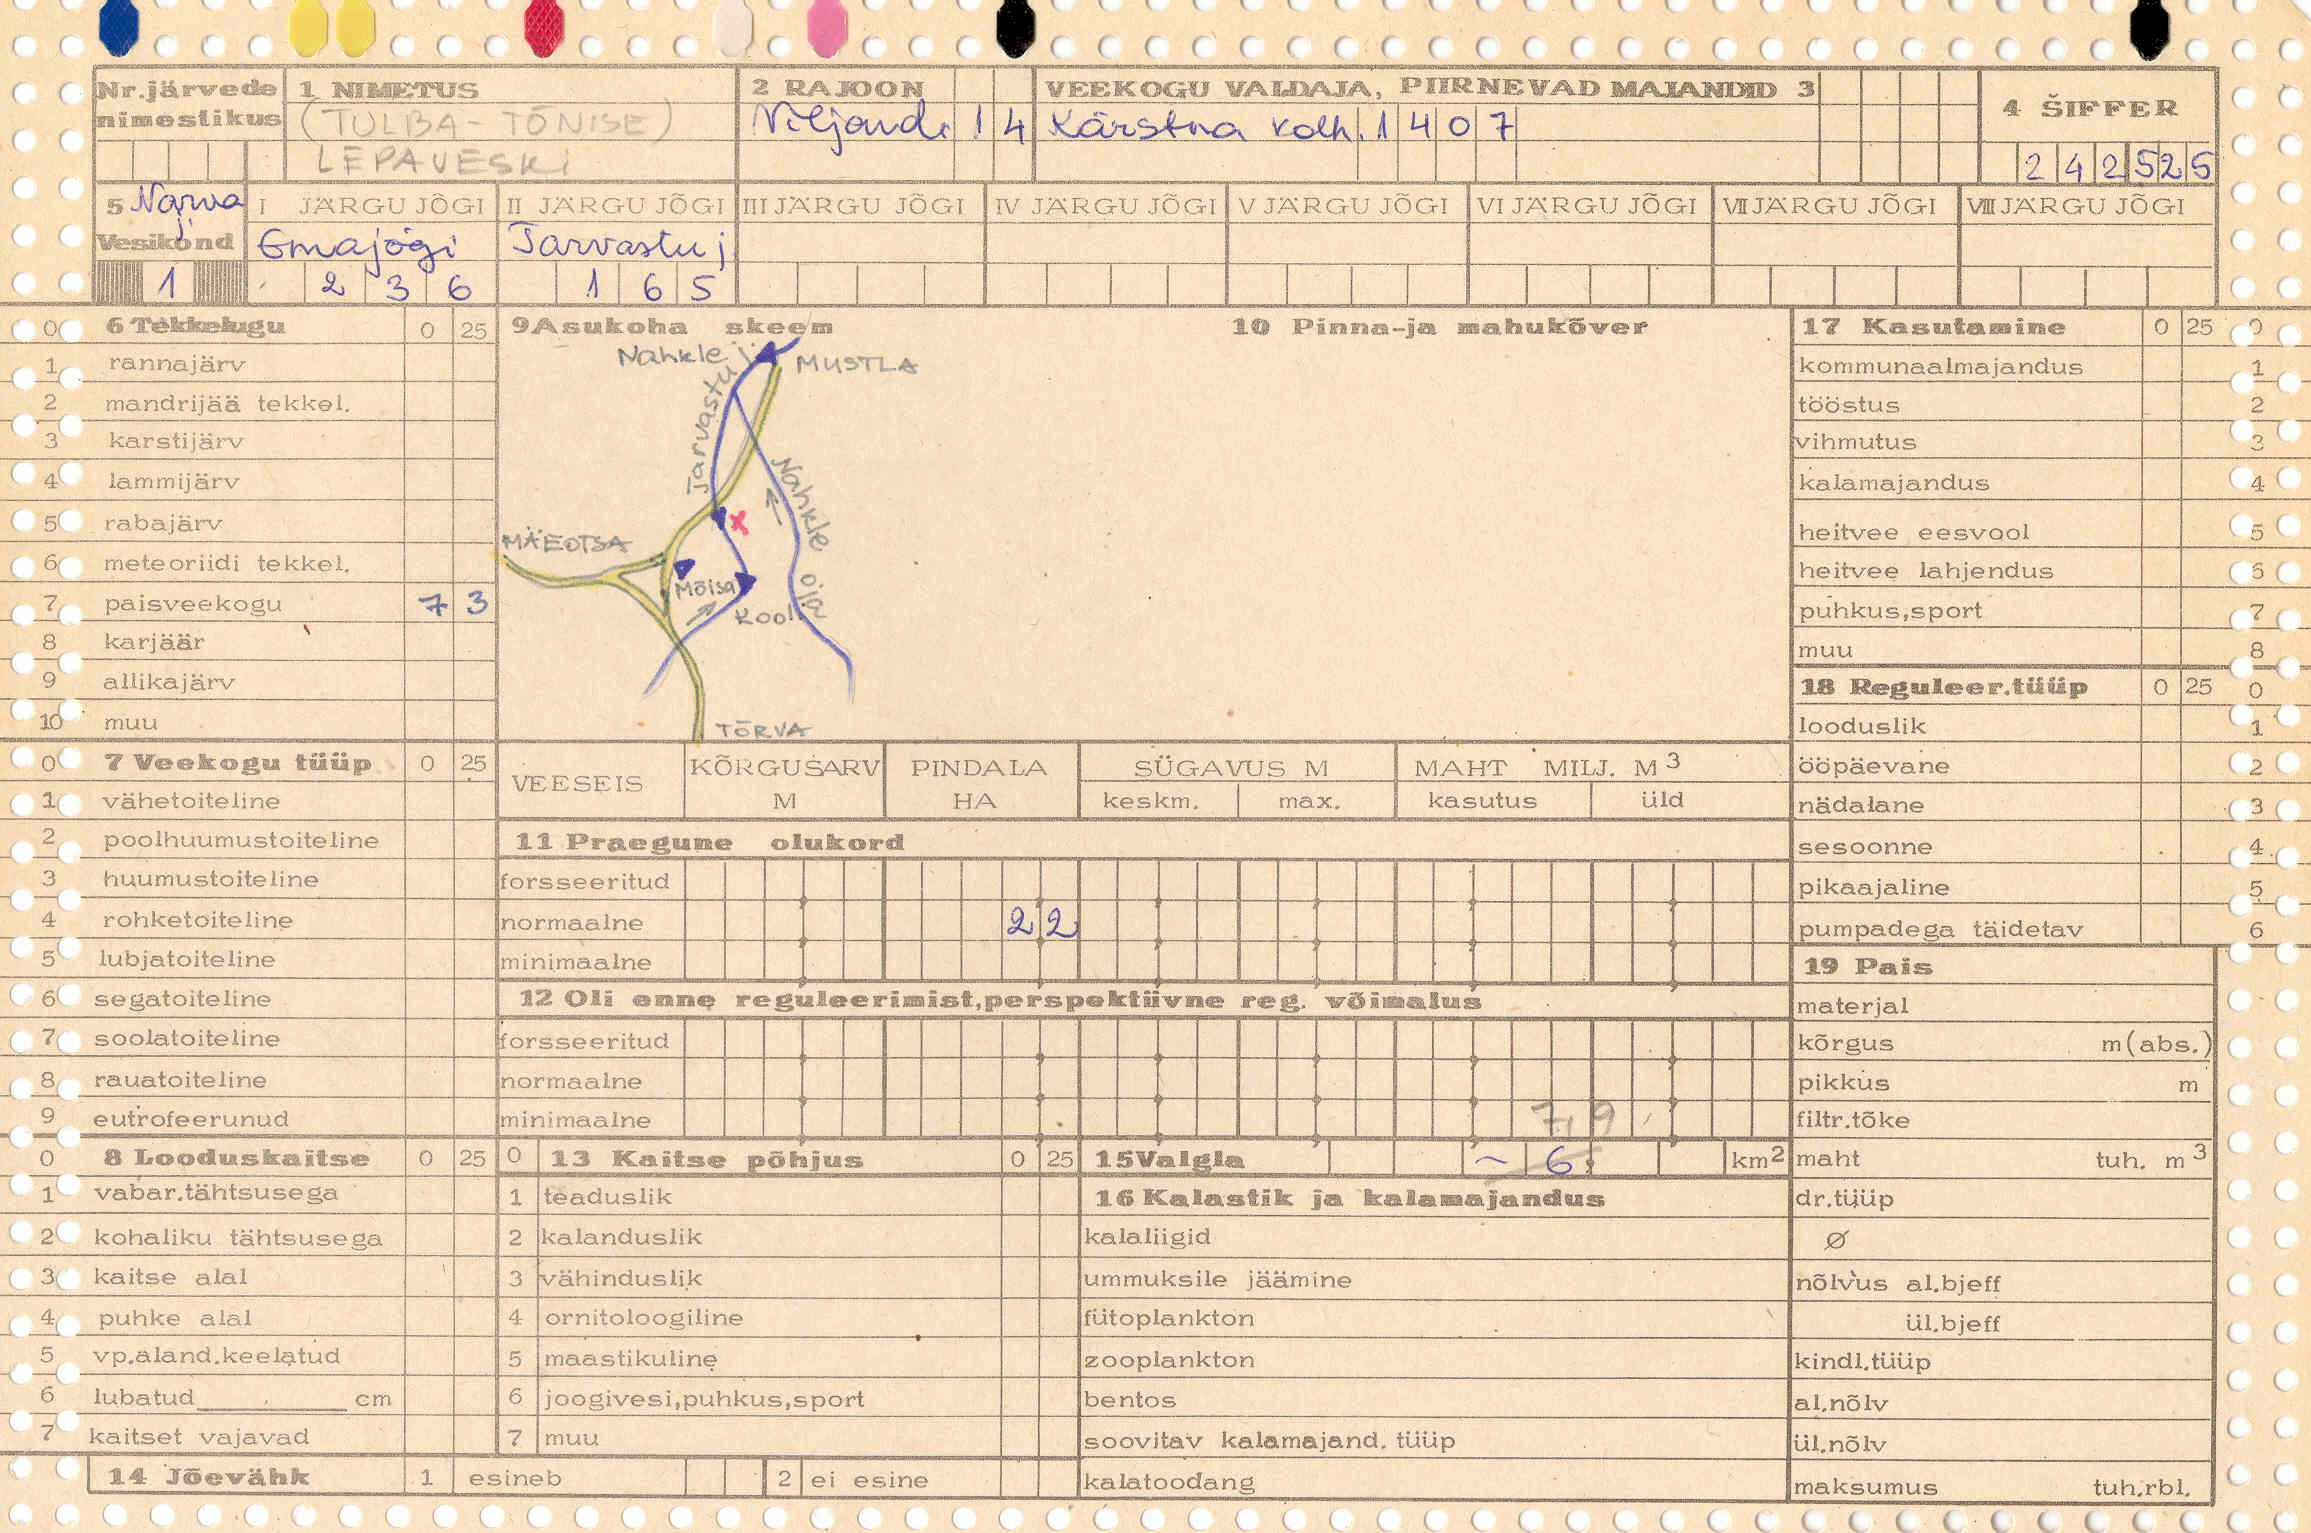 Nr.järvede nimestikus
1 NIMETUS
(TULBA-TÕNISE)
LEPAVESKI
2 RAJOON
Viljandi 14
VEEKOGU VALDAJA, PIIRNEVAD MAJANDID 3
Kärstna kolh. 1407
4 ŠIFFER
242525
5 Narva j
Vesikond
1
I JÄRGU JÕGI
Emajõgi
236
II JÄRGU JÕGI
Tarvastu j
165
III JÄRGU JÕGI
IV JÄRGU JÕGI
V JÄRGU JÕGI
VI JÄRGU JÕGI
VII JÄRGU JÕGI
VIII JÄRGU JÕGI
0 6 Tekkelugu 0 25
1 rannajärv
2 mandrijää tekkel.
3 karstijärv
4 lammijärv
5 rabajärv
6 meteoriidi tekkel.
7 paisveekogu 7 3
8 karjäär
9 allikajärv
10 muu
9 Asukoha skeem
Nahkle j.
MUSTLA
Tarvastu
Nahkle oja
MÄEOTSA
Mõisa
Kool
TÕRVA
10 Pinna-ja mahukõver
17 Kasutamine 0 25 0
kommunaalmajandus 1
tööstus 2
vihmutus 3
kalamajandus 4
heitvee eesvool 5
heitvee lahjendus 6
puhkus,sport 7
muu 8
18 Reguleer.tüüp 0 25 0
looduslik 1
ööpäevane 2
nädalane 3
sesoonne 4
pikaajaline 5
pumpadega täidetav 6
0 7 Veekogu tüüp 0 25
1 vähetoiteline
2 poolhuumustoiteline
3 huumustoiteline
4 rohketoiteline
5 lubjatoiteline
6 segatoiteline
7 soolatoiteline
8 rauatoiteline
9 eutrofeerunud
VEESEIS
KÕRGUSARV M
PINDALA HA
SÜGAVUS M
keskm. max.
MAHT MILJ. M3
kasutus üld
11 Praegune olukord
forsseeritud
normaalne 2 2
minimaalne
12 Oli enne reguleerimist,perspektiivne reg. võimalus
forsseeritud
normaalne
minimaalne
7,9
19 Pais
materjal
kõrgus m(abs.)
pikkus m
filtr.tõke
maht tuh. m3
dr.tüüp
ø
nõlvus al.bjeff
ül.bjeff
kindl.tüüp
al.nõlv
ül.nõlv
maksumus tuh.rbl.
0 8 Looduskaitse 0 25
1 vabar.tähtsusega
2 kohaliku tähtsusega
3 kaitse alal
4 puhke alal
5 vp.aland.keelatud
6 lubatud ______ cm
7 kaitset vajavad
0 13 Kaitse põhjus 0 25
1 teaduslik
2 kalanduslik
3 vähinduslik
4 ornitoloogiline
5 maastikuline
6 joogivesi,puhkus,sport
7 muu
15 Valgla ~ 6 km2
16 Kalastik ja kalamajandus
kalaliigid
ummuksile jäämine
fütoplankton
zooplankton
bentos
soovitav kalamajand. tüüp
kalatoodang
14 Jõevähk 1 esineb 2 ei esine